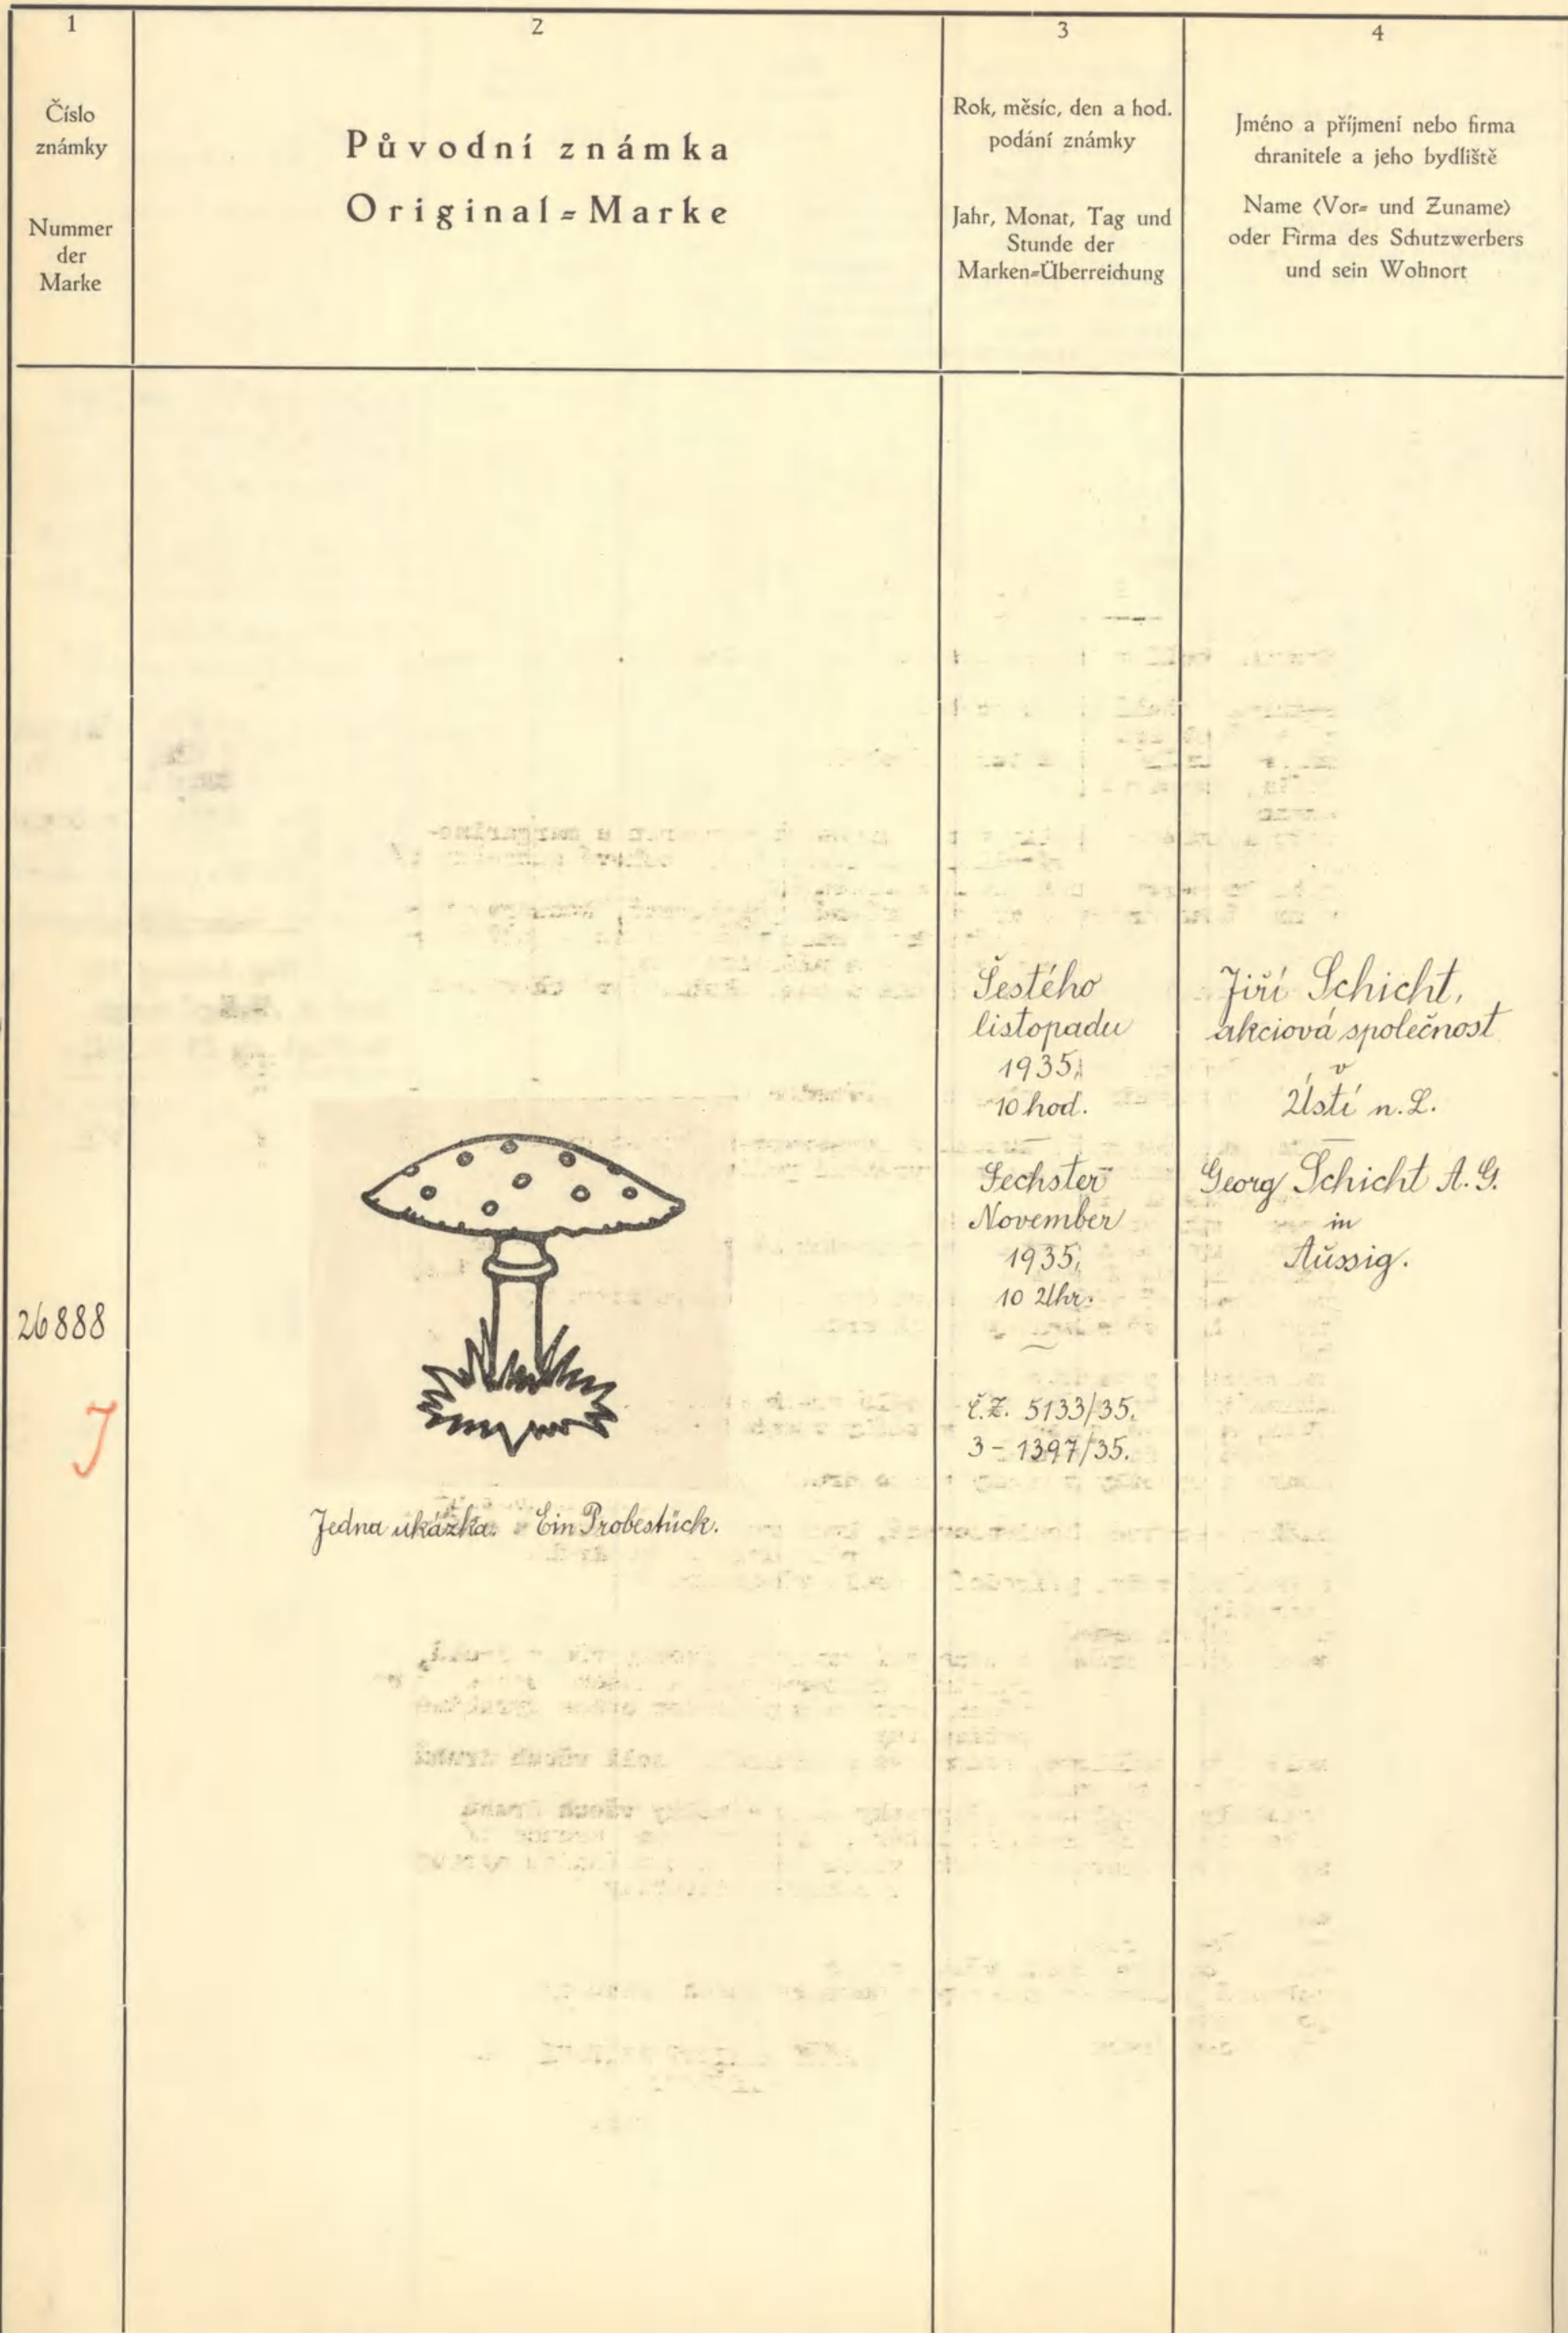 1
Číslo
známky
Nummer
der
Marke
2
Původní známka
Original=Marke
3
Rok, měsíc, den a hod.
podání známky
Jahr, Monat, Tag und
Stunde der
Marken=Überreichung
4
Jméno a příjmení nebo firma
chranitele a jeho bydliště
Name (Vor= und Zuname)
oder Firma des Schutzwerbers
und sein Wohnort
26888
J
Jedna ukázka. Ein Probestück.
Šestého
listopadu
1935,
10 hod.
Sechster
November
1935,
10 Uhr.
č.ž. 5133/35.
3 - 1397/35.
Jiří Schicht,
akciová společnost
v
Ústí n. L.
Georg Schicht A. G.
in
Aussig.